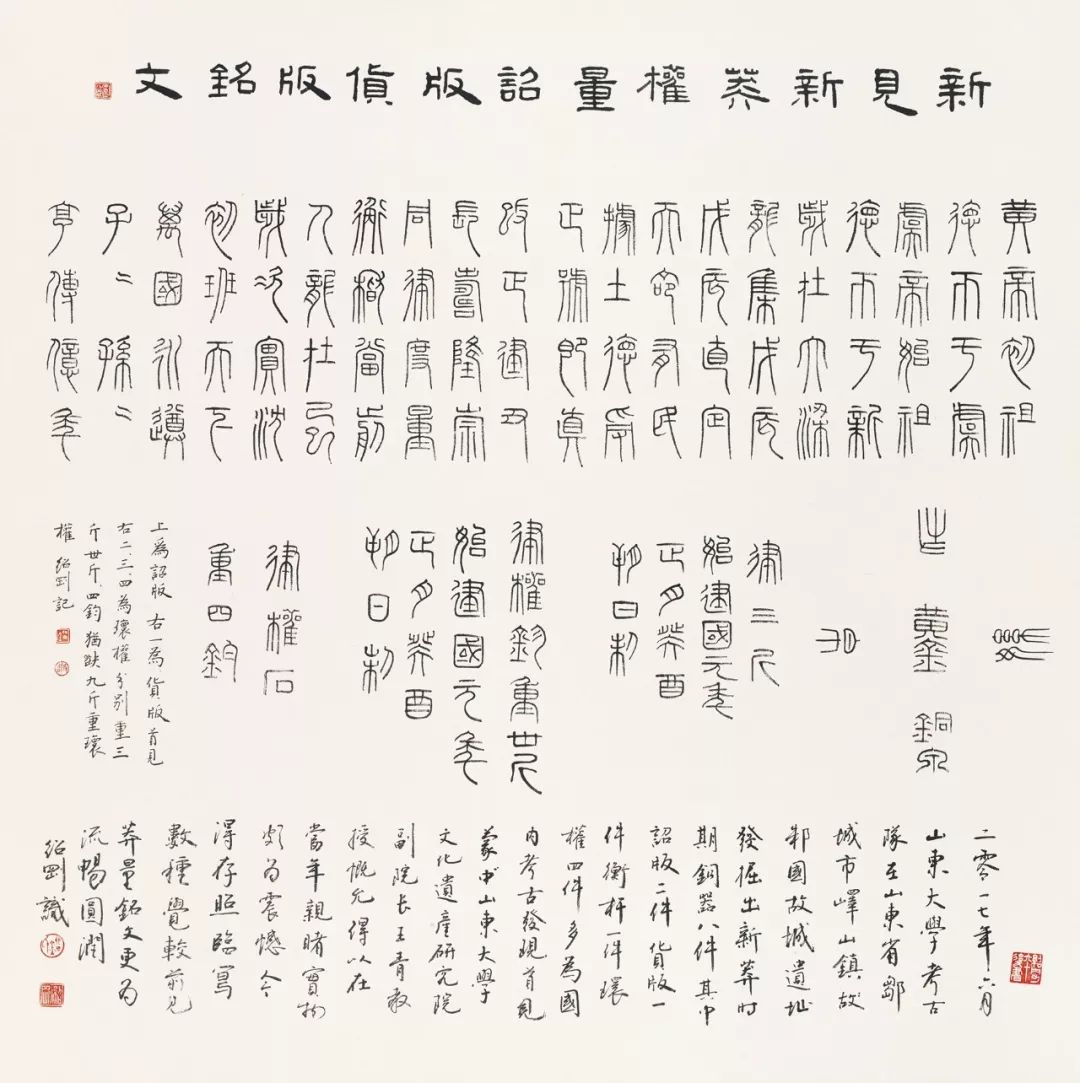 新見新莽權量詔版貨版銘文
黃帝初祖
德帀于虞
虞帝始祖
德帀于新
歲在大梁
龍集戊辰
戊辰直定
天命有民
據土德受
正號即真
改正建丑
長壽隆崇
同律度量
衡稽當前
人龍在己
歲次實沈
初班天下
萬國永遵
子=孫=
享傳億年
黃金 銅泉
律三斤
始建國元年
正月癸酉
朔日制
律權鈞重卅斤
始建國元年
正月癸酉
朔日制
律權石
重四鈞
上為詔版 右一為貨版首見
右二、三、四為環權分別重三
斤卅斤、四鈞猶缺九斤重環
權 紹剛記
二零一七年六月
山東大學考古
隊在山東省鄒
城市嶧山鎮故
邾國故城遺址
發掘出新莽時
期銅器八件其中
詔版二件貨版一
件衡杆一件環
權四件多為國
內考古發現首見
蒙山東大學
文化遺產研究院
副院長王青教
授慨允得以在
當年親睹實物
頗為震憾今
得存照臨寫
數種覺較前見
莽量銘文更為
流暢圓潤
紹剛識